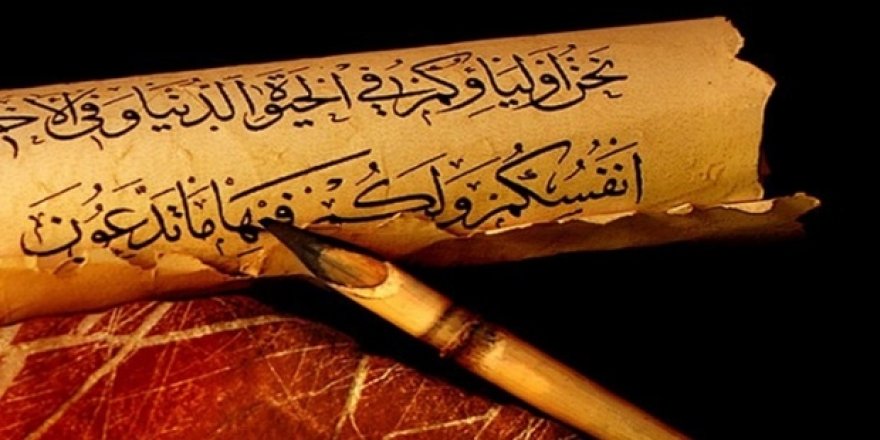 نَحْنُ اَوْلِيَاؤُكُمْ فِي الْحَيٰوةِ الدُّنْيَا وَفِي الْاٰخ
اَنْفُسُكُمْ وَلَكُمْ فِيهَا مَا تَدَّعُونَ